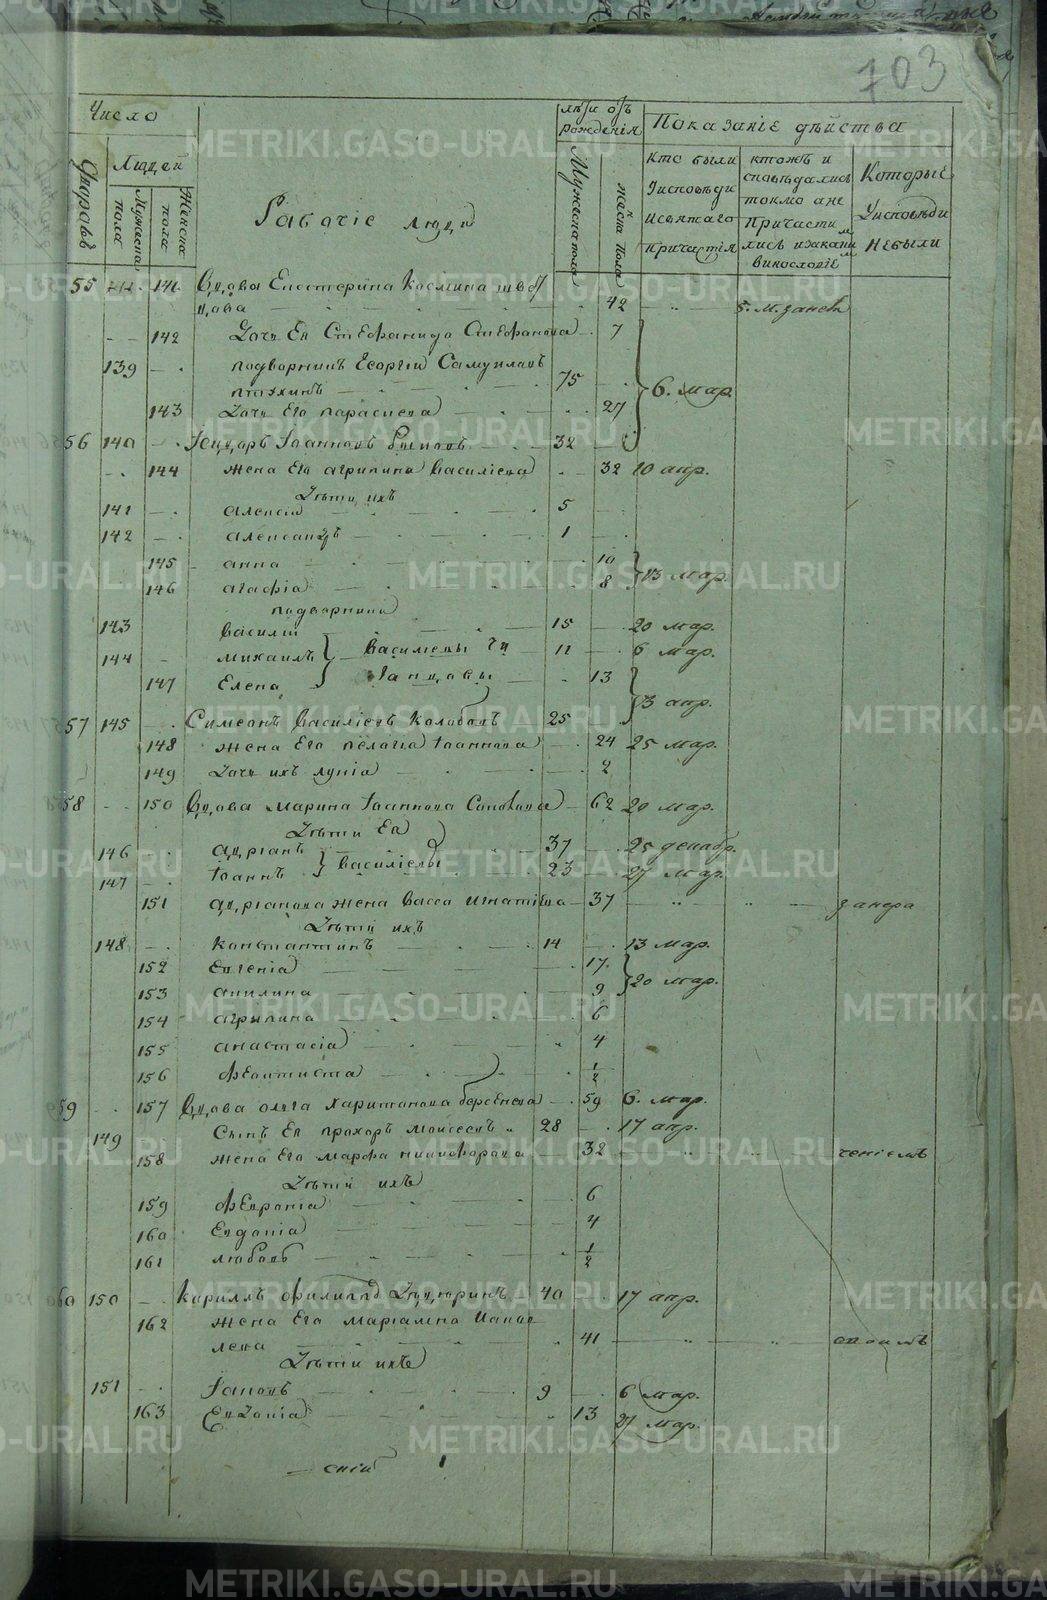 703
Число
лѣта отъ рожденія
Показаніе дѣйства
Дворовъ
Людей
Мужеска пола
Женска пола
Рабочіе люди
Мужеска пола
женска пола
Кто были у исповѣди и святаго причастія
кто жъ исповѣдались токмо а не причастились и за каким винословіем
Которые у исповѣди не были
55 141 Вдова Екатерина Космина
42
142 Дочь Ея Стефанида Стефанова 7
139 подворникъ Георгій Самуиловъ
75
6. мар.
143 Дочь Его параскева 27
56 140 Ѳеодоръ Іоанновъ 32
144 жена Его агрипина Василіева 32 10 апр.
Дѣти ихъ
141 алексій 5
142 александръ 1
145 анна 10
146 агафіа 8 13 мар.
подворники
143 Василій 15 20 мар.
144 михаилъ Василіевы 11 6 мар.
147 Елена 13
3 апр.
57 145 Симеонъ Василіевъ Колобовъ 25
148 жена Его пелагіа Іоаннова 24 25 мар.
149 Дочь ихъ лукіа 2
58 150 Вдова Марина Іоаннова 62 20 мар.
Дѣти Ея
146 адріанъ 37 25 декабр.
Василіевы
147 Іоаннъ 23 27 мар.
151 адріанова жена Васса Игнатіева 37
Дѣти ихъ
148 константинъ 14 13 мар.
152 Евгеніа 17
153 акилина 9 20 мар.
154 агрипина 6
155 анастасіа 4
156 Ѳеоктиста 1/2
59 157 Вдова ольга Харитонова 59 6. мар.
149 Сынъ Ея прохоръ моисеевъ 28 17 апр.
158 жена Его марфа никифорова 32
Дѣти ихъ
159 Февроніа 6
160 Евдокіа 4
161 любовь 1/2
60 150 Кириллъ Филипповъ 40 17 апр.
162 жена Его маріамна
41
Дѣти ихъ
151 Іаковъ 9 6 мар.
163 Евдокіа 13 27 мар.
METRIKI.GASO-URAL.RU